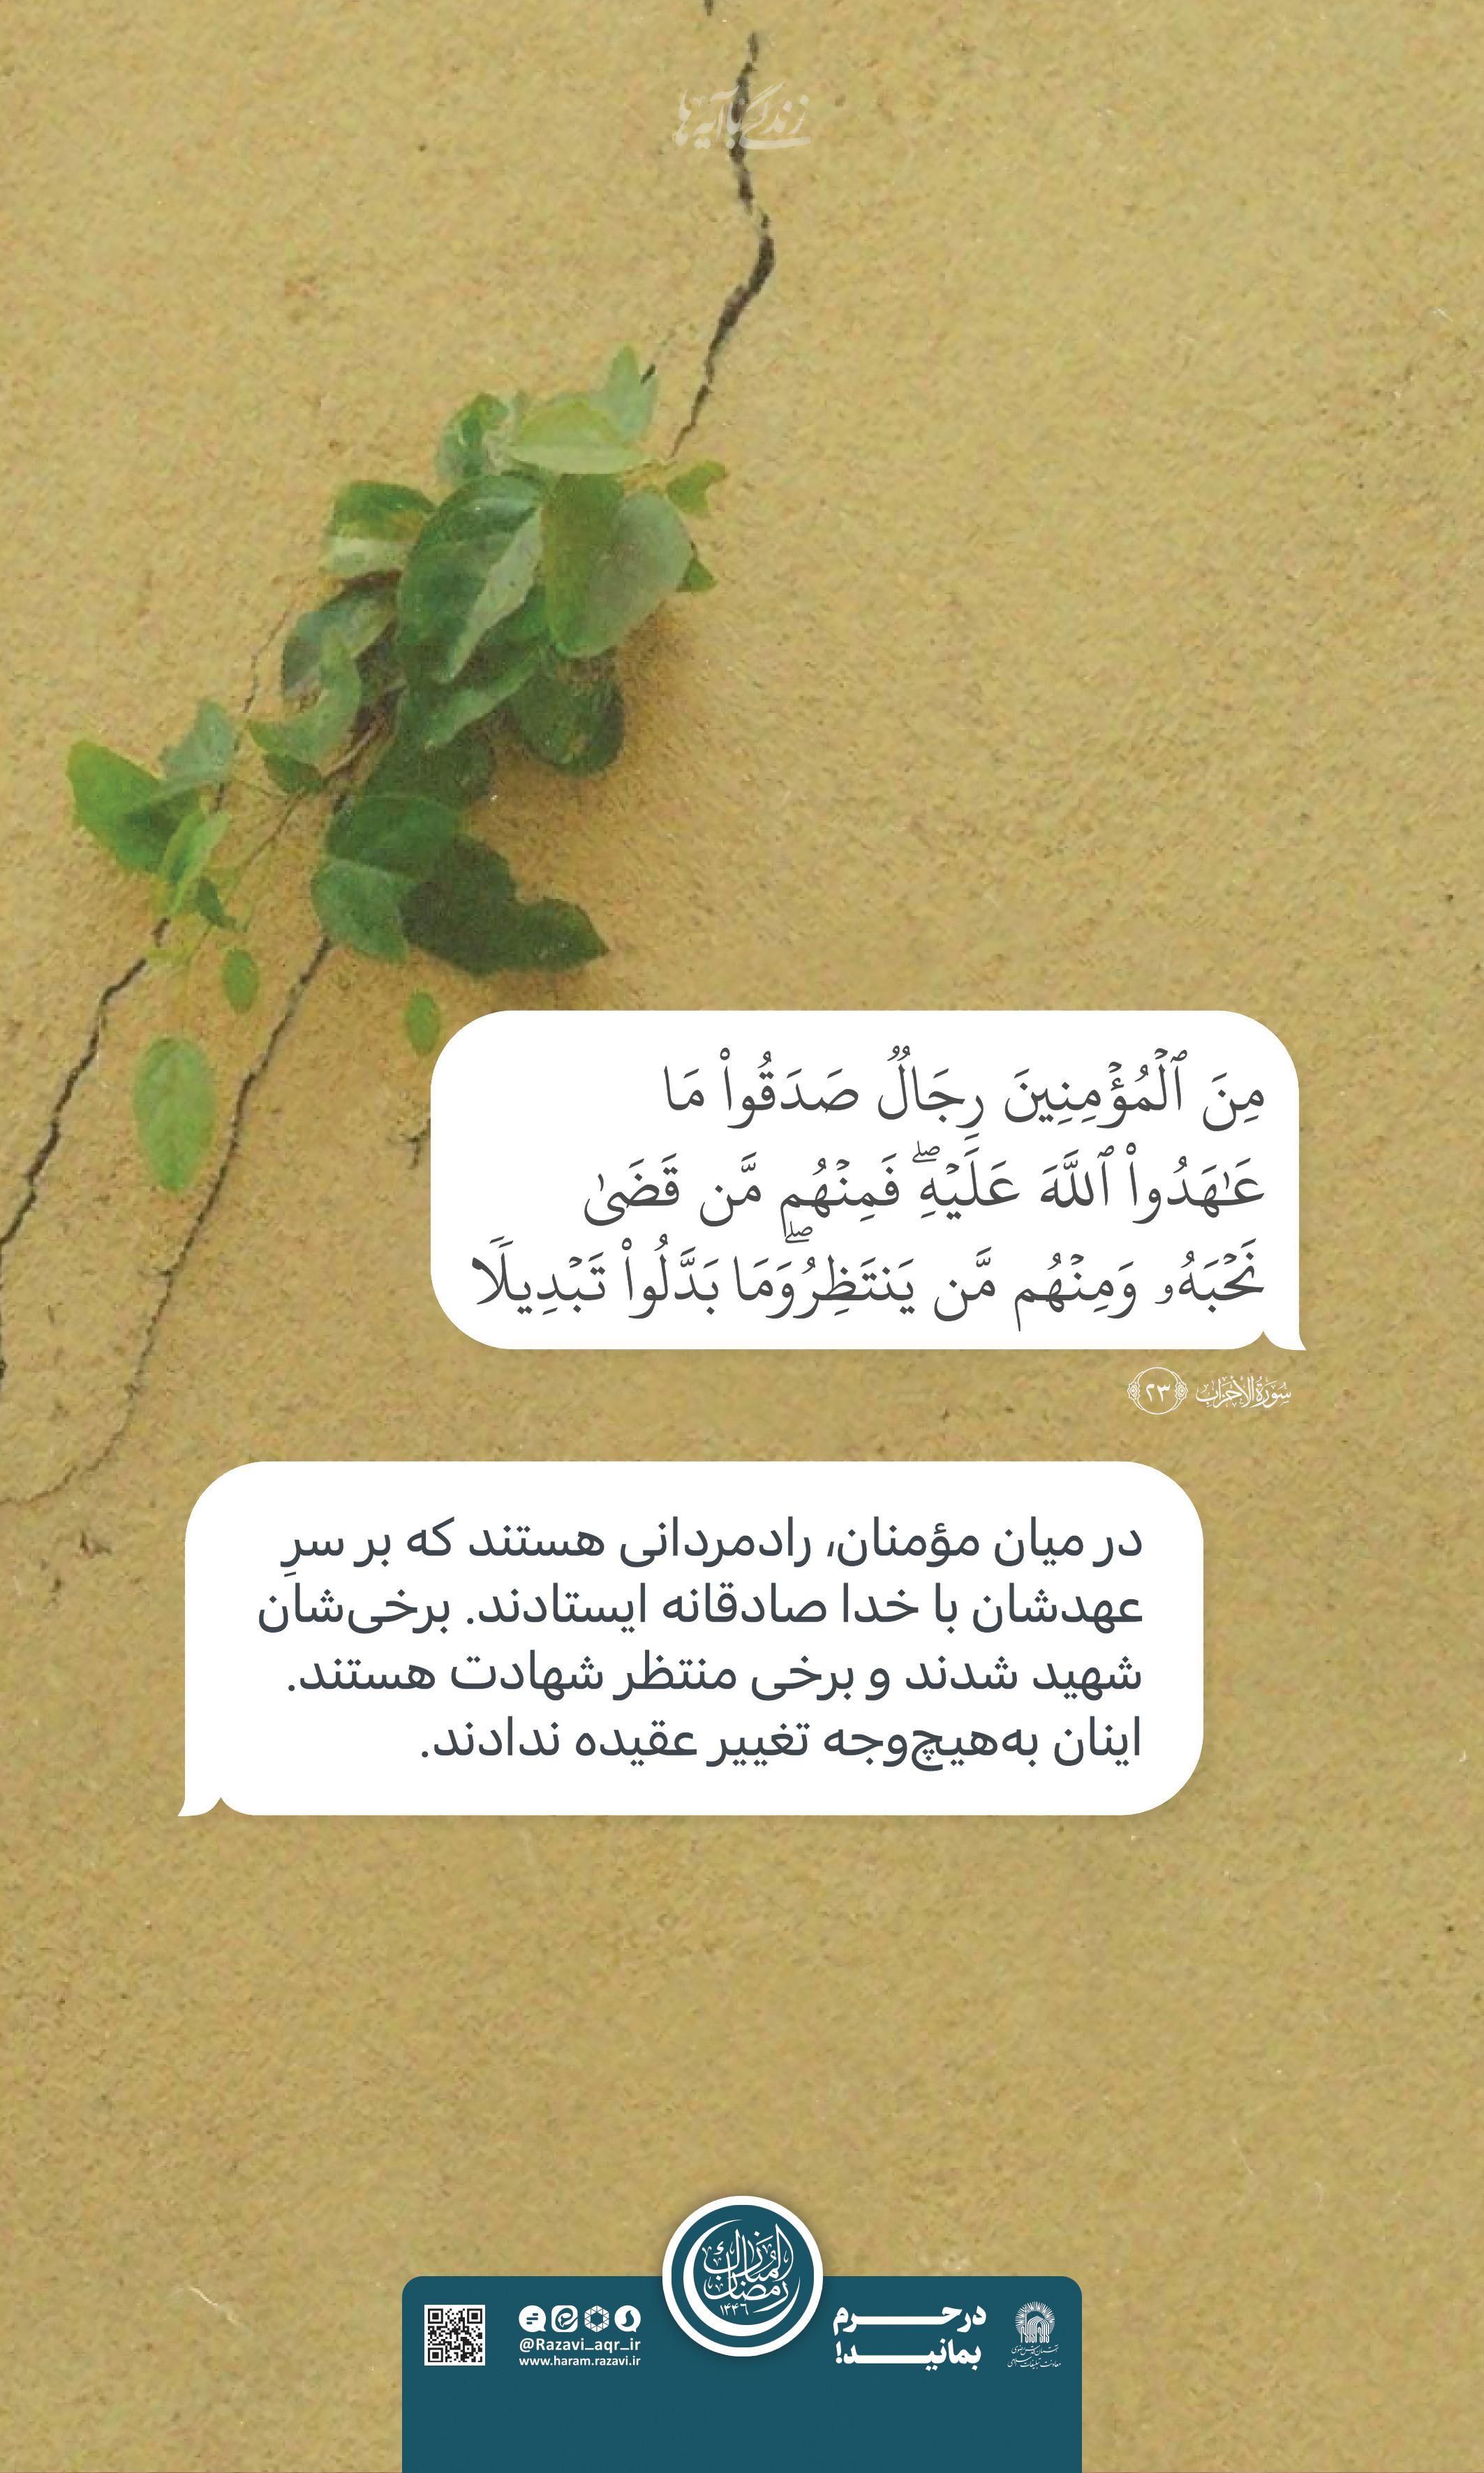 زندگی با آیه‌ها
مِنَ ٱلْمُؤْمِنِينَ رِجَالٌ صَدَقُوا۟ مَا
عَـٰهَدُوا۟ ٱللَّهَ عَلَيْهِ ۖ فَمِنْهُم مَّن قَضَىٰ
نَحْبَهُۥ وَمِنْهُم مَّن يَنتَظِرُ ۖ وَمَا بَدَّلُوا۟ تَبْدِيلًا
سورة الأحزاب ٢٣
در میان مؤمنان، رادمردانی هستند که بر سرِ
عهدشان با خدا صادقانه ایستادند. برخی‌شان
شهید شدند و برخی منتظر شهادت هستند.
اینان به‌هیچ‌وجه تغییر عقیده ندادند.
رمضان المبارک
۱۴۴۶
در حرم
بمانید!
آستان قدس رضوی
معاونت تبلیغات اسلامی
@Razavi_aqr_ir
www.haram.razavi.ir